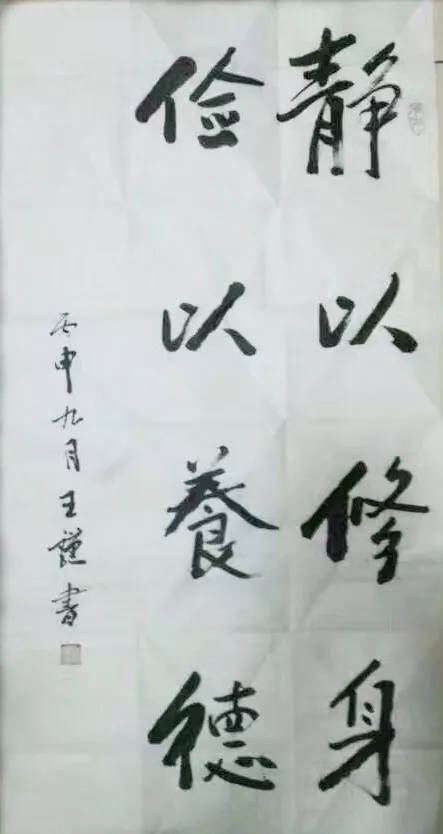 静以修身
俭以養德
丙申九月王謹書